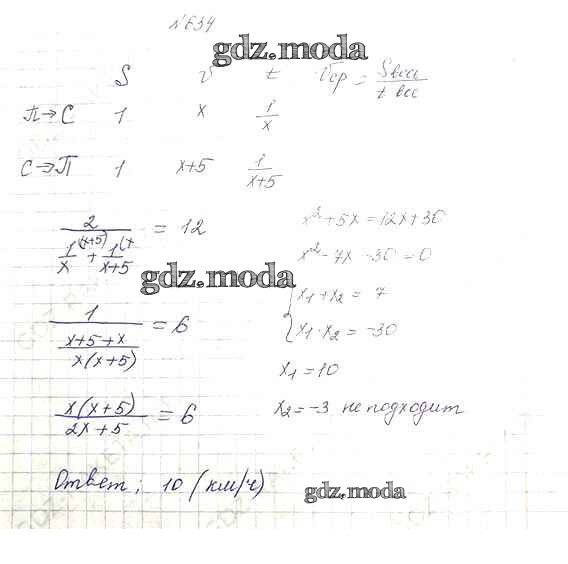 №634
gdz.moda
S v t Vср = Sвсш / t все
П→С 1 x 1/x
С→П 1 x+5 1/(x+5)
2 / (1/x^(x+5) + 1/(x+5)^(x) = 12
gdz.moda
1 / ((x+5+x) / (x(x+5))) = 6
x(x+5) / (2x+5) = 6
x²+5x=12x+30
x²-7x-30=0
{ x₁+x₂ = 7
x₁·x₂ = -30
x₁=10
x₂=-3 не подходит
Ответ: 10 (км/ч)
gdz.moda